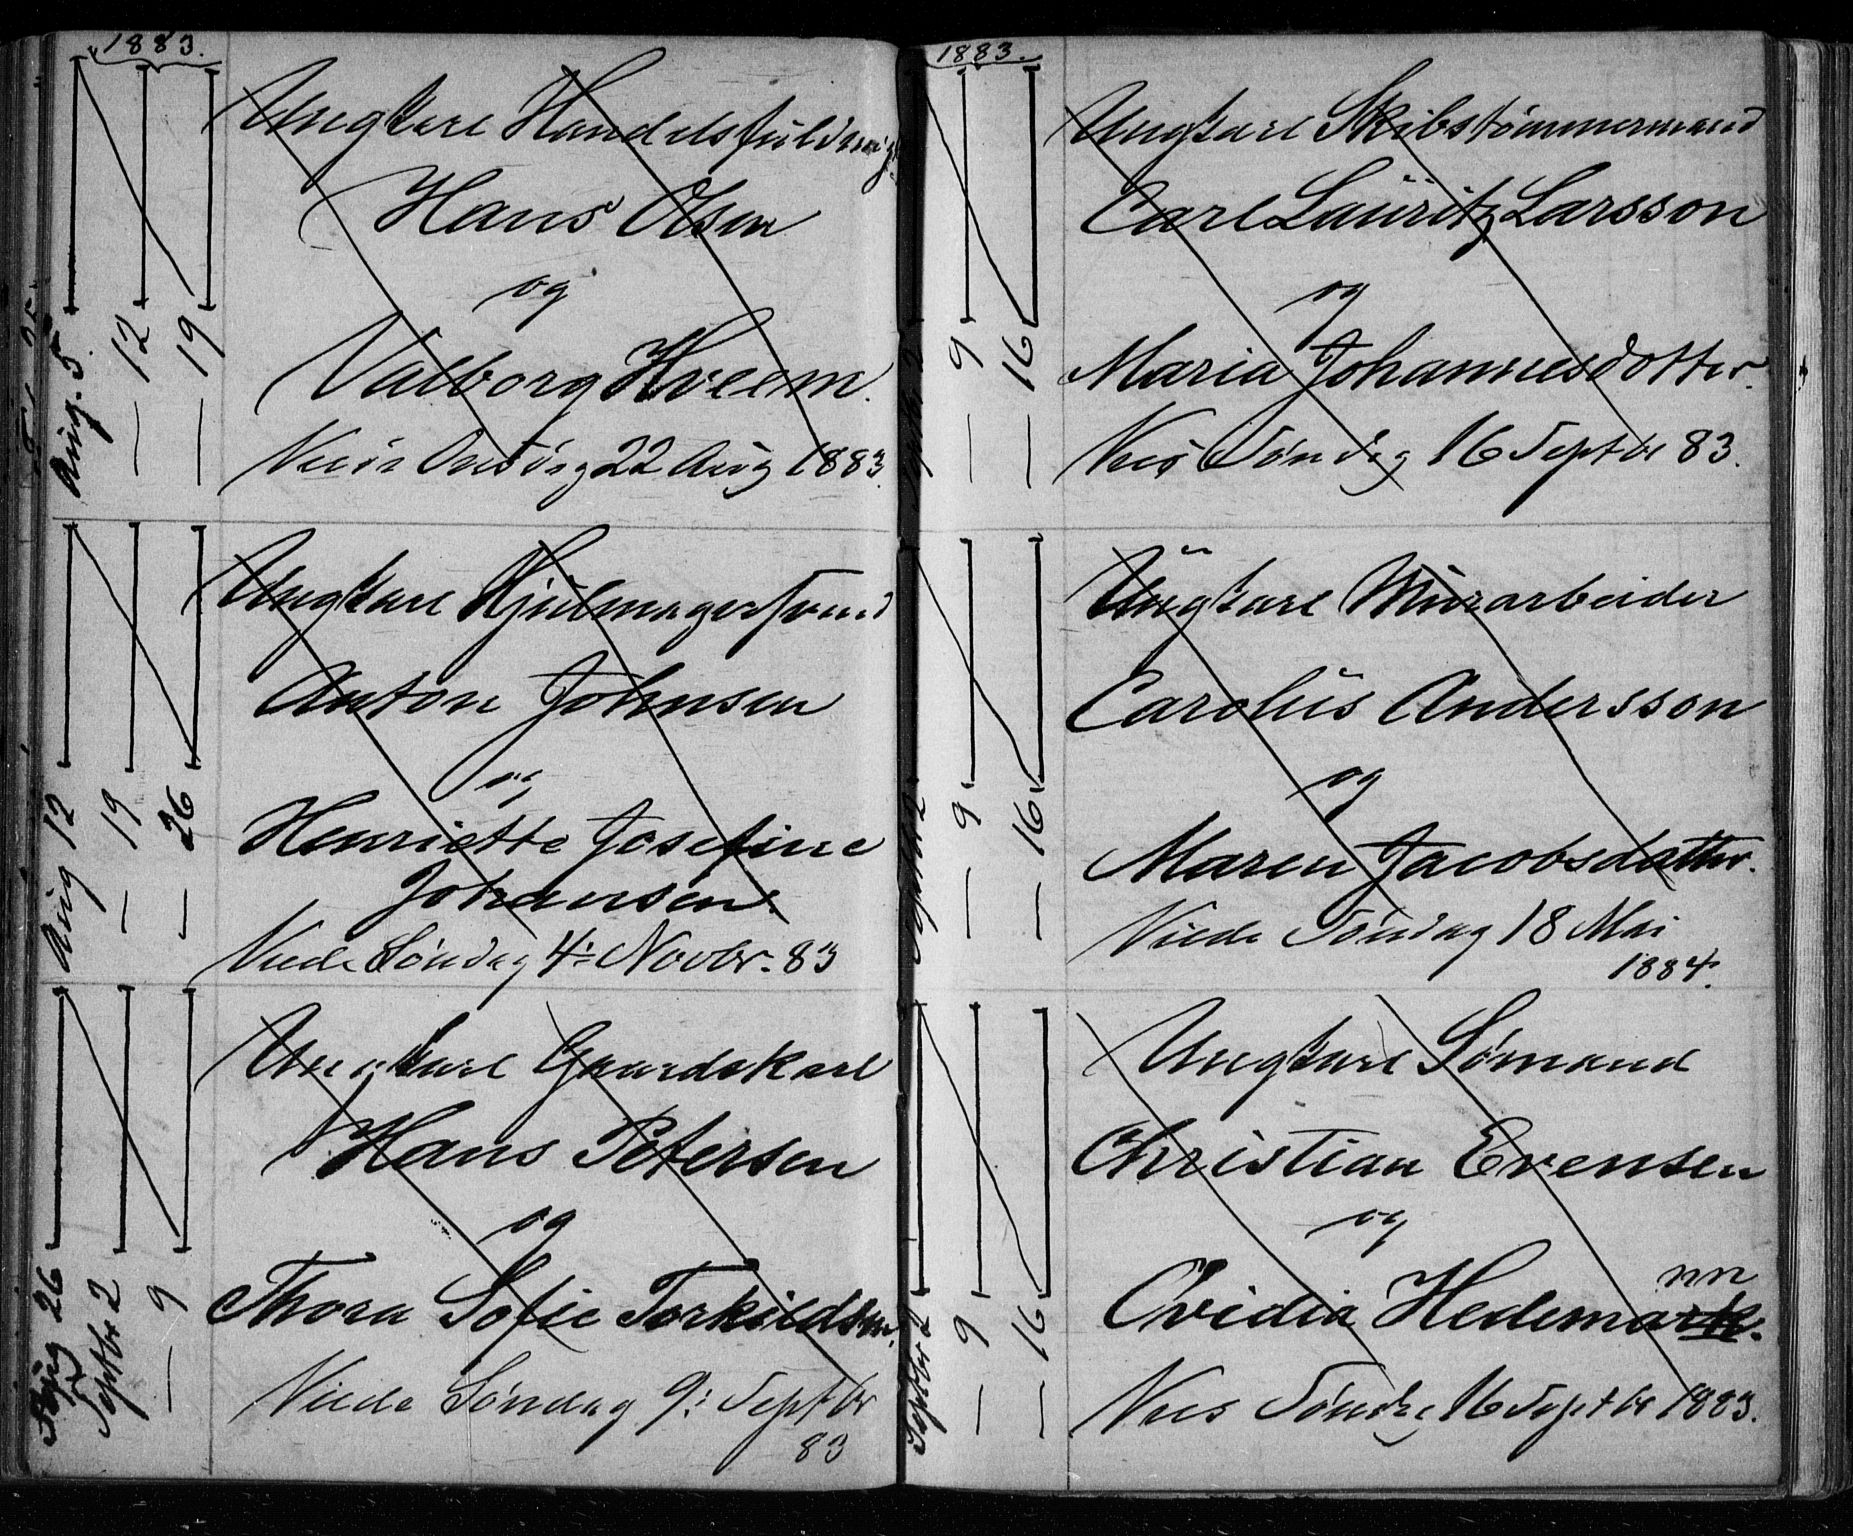 1883.
Aug. 5
— 12
— 19
Ungkarl Handelsfuldmægt
Hans Olsen
og
Valborg Hveem.
Viede Onsdag 22 Aug 1883.
Aug 12
— 19
— 26
Ungkarl Hjulmagersvend
Anton Johnsen
og
Henriette Josefine
Johansen.
Viede Søndag 4: Novbr. 83
Aug 26
Septbr 2
— 9
Ungkarl Gaardskarl
Hans Petersen
og
Thora Sofie Torkildsen.
Viede Søndag 9: Septbr
83
1883.
Septbr 2
— 9
— 16
Ungkarl Skibstømmermand
Carl Lauritz Larsson
og
Maria Johannesdotter.
Vies Søndag 16 Septbr 83.
Septbr 2
— 9
— 16
Ungkarl Murarbeider
Carolus Andersson
og
Maren Jacobsdatter.
Viede Søndag 18 Mai
1884.
Septbr 2
— 9
— 16
Ungkarl Sømand
Christian Evensen
og
nn
Ovidia Hedemark.
Vies Søndag 16 Septbr 1883.